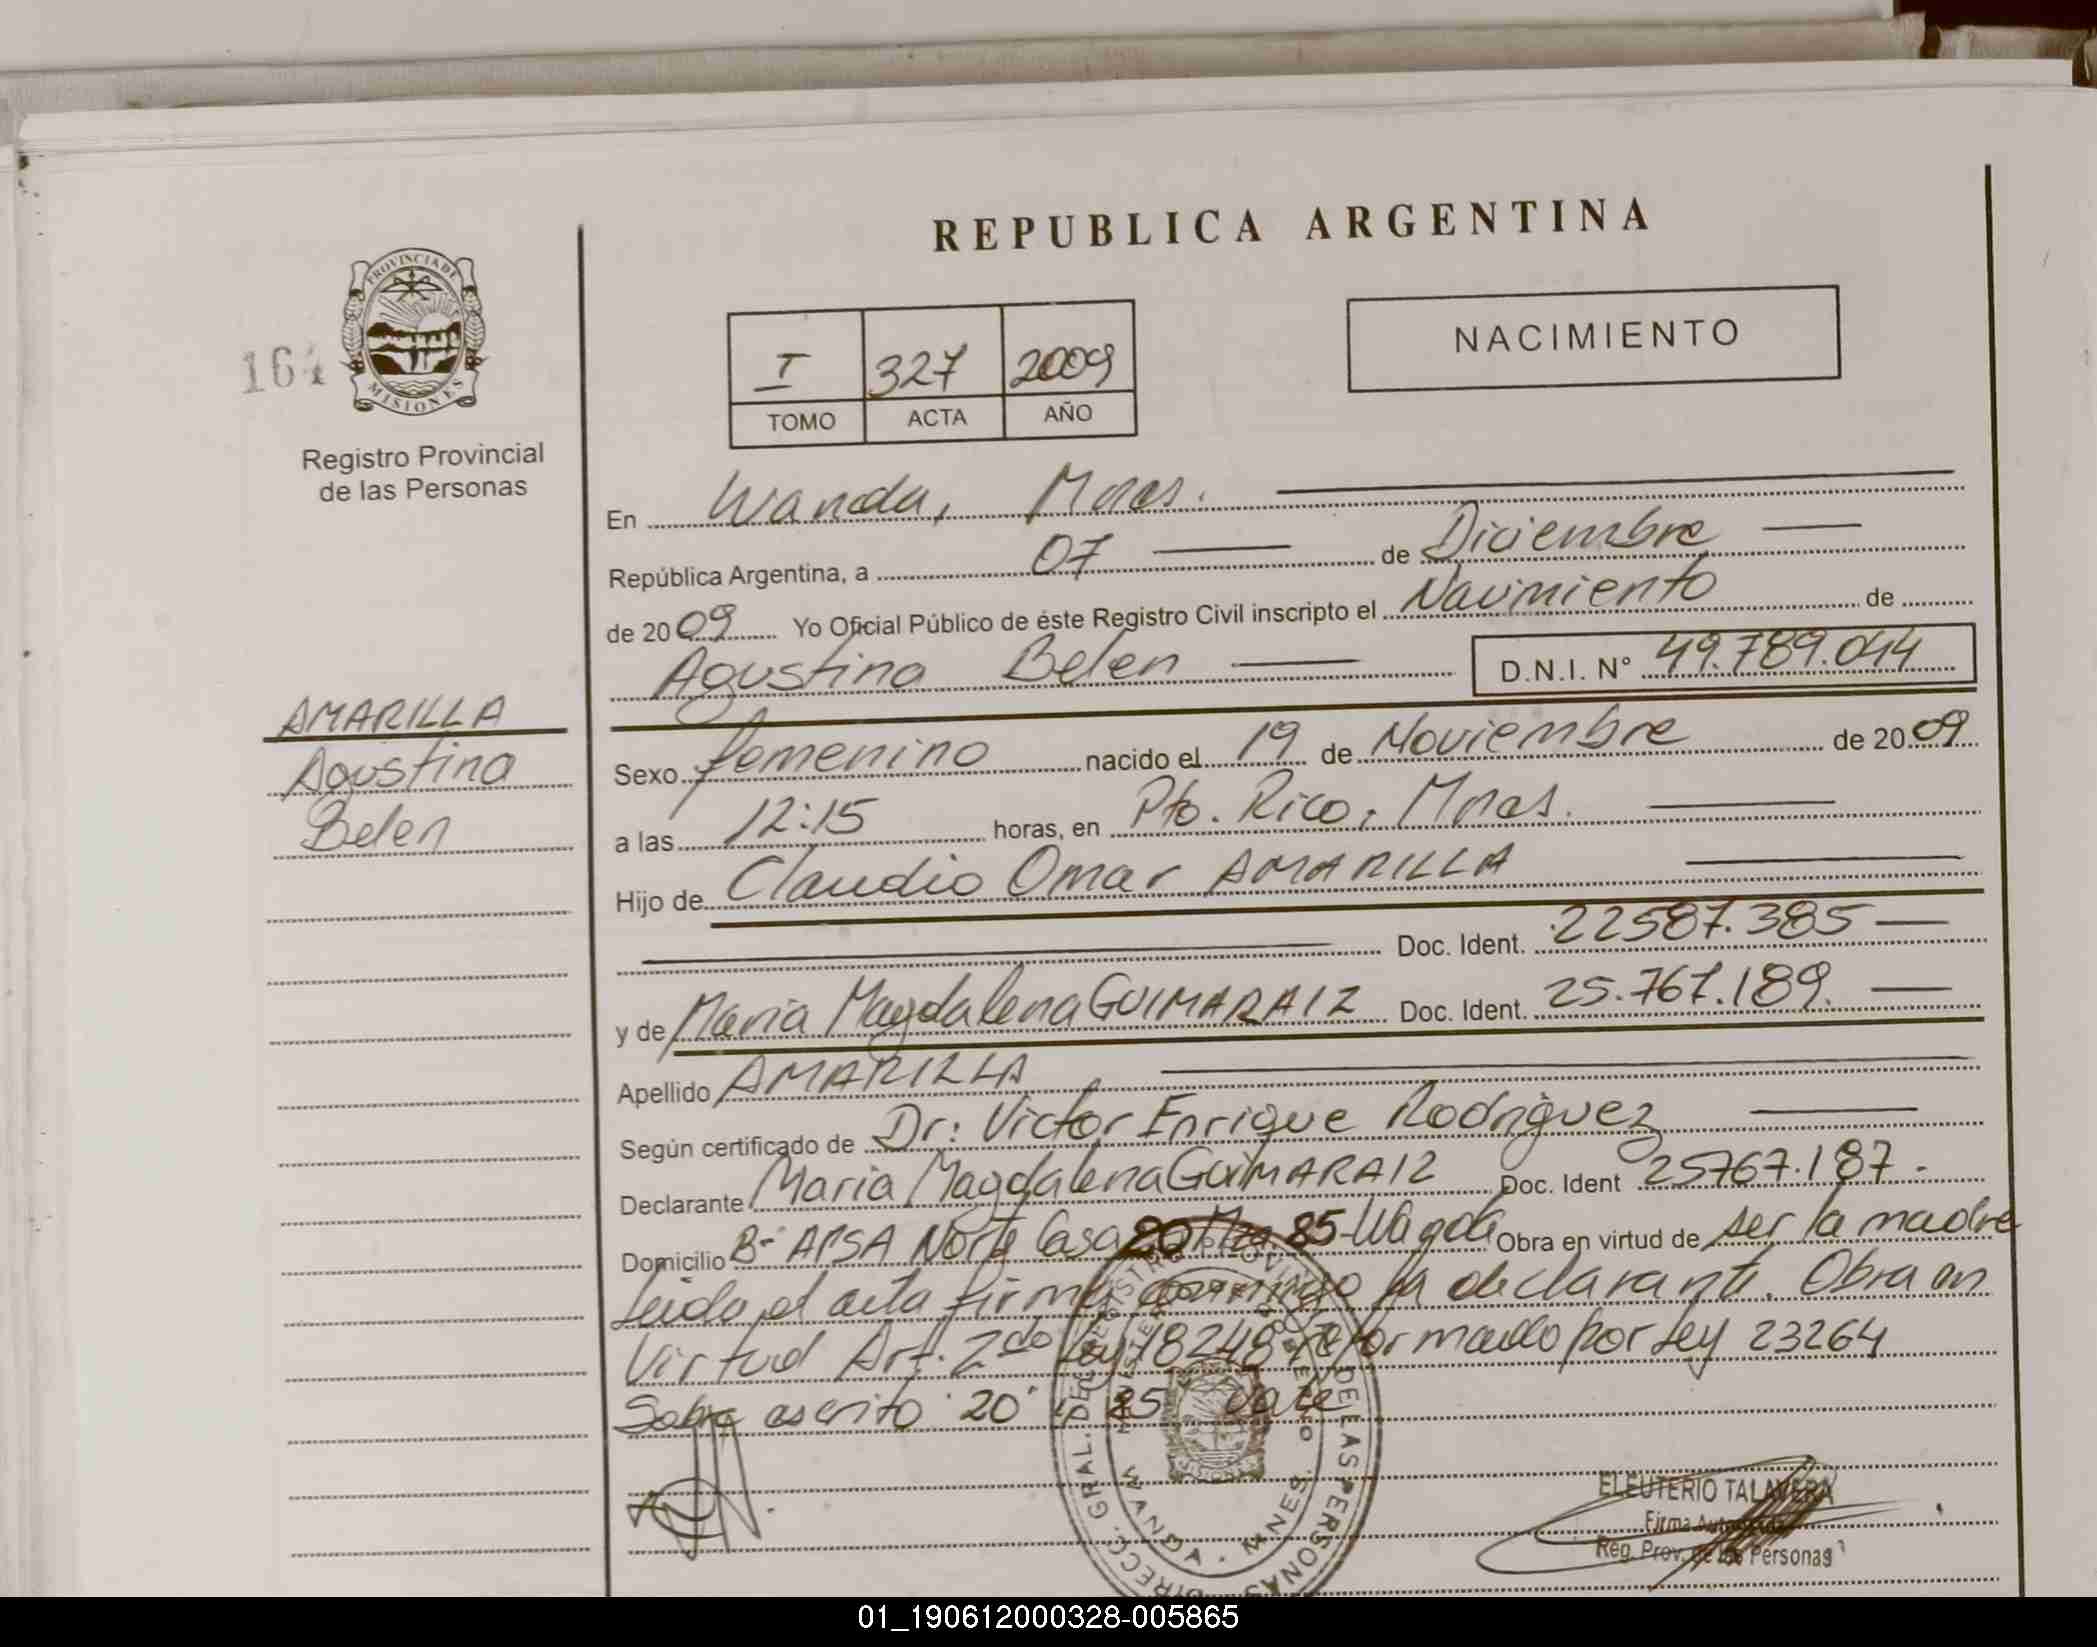 REPUBLICA ARGENTINA
PROVINCIA DE
MISIONES
164
Registro Provincial
de las Personas
I 327 2009
TOMO ACTA AÑO
NACIMIENTO
En Wanda, Mnes.
República Argentina, a 07 de Diciembre
de 2009 Yo Oficial Público de éste Registro Civil inscripto el Nacimiento de
Agustina Belen D.N.I. N° 49.789.044
AMARILLA
Agustina
Belen
Sexo femenino nacido el 19 de Noviembre de 2009
a las 12:15 horas, en Pto. Rico, Mnes.
Hijo de Claudio Omar AMARILLA
Doc. Ident. 22587.385
y de Maria Magdalena GUIMARAIZ Doc. Ident. 25.767.189.
Apellido AMARILLA
Según certificado de Dr: Victor Enrique Rodriguez
Declarante Maria Magdalena GUIMARAIZ Doc. Ident 25767.187.
Domicilio B- APSA Norte Casa 20 Mza 85-Wanda Obra en virtud de ser la madre
Leida el acta firma conmigo la declarante. Obra en
Virtud Art. 2do Ley 18248 reformado por Ley 23264
Sobre escrito "20" y 85 vale
DIRECC. GRAL. DEL REGISTRO PROVINCIAL DE LAS PERSONAS
WANDA - MNES.
ELEUTERIO TALAVERA
Firma Autorizada
Reg. Prov. de las Personas
01_190612000328-005865